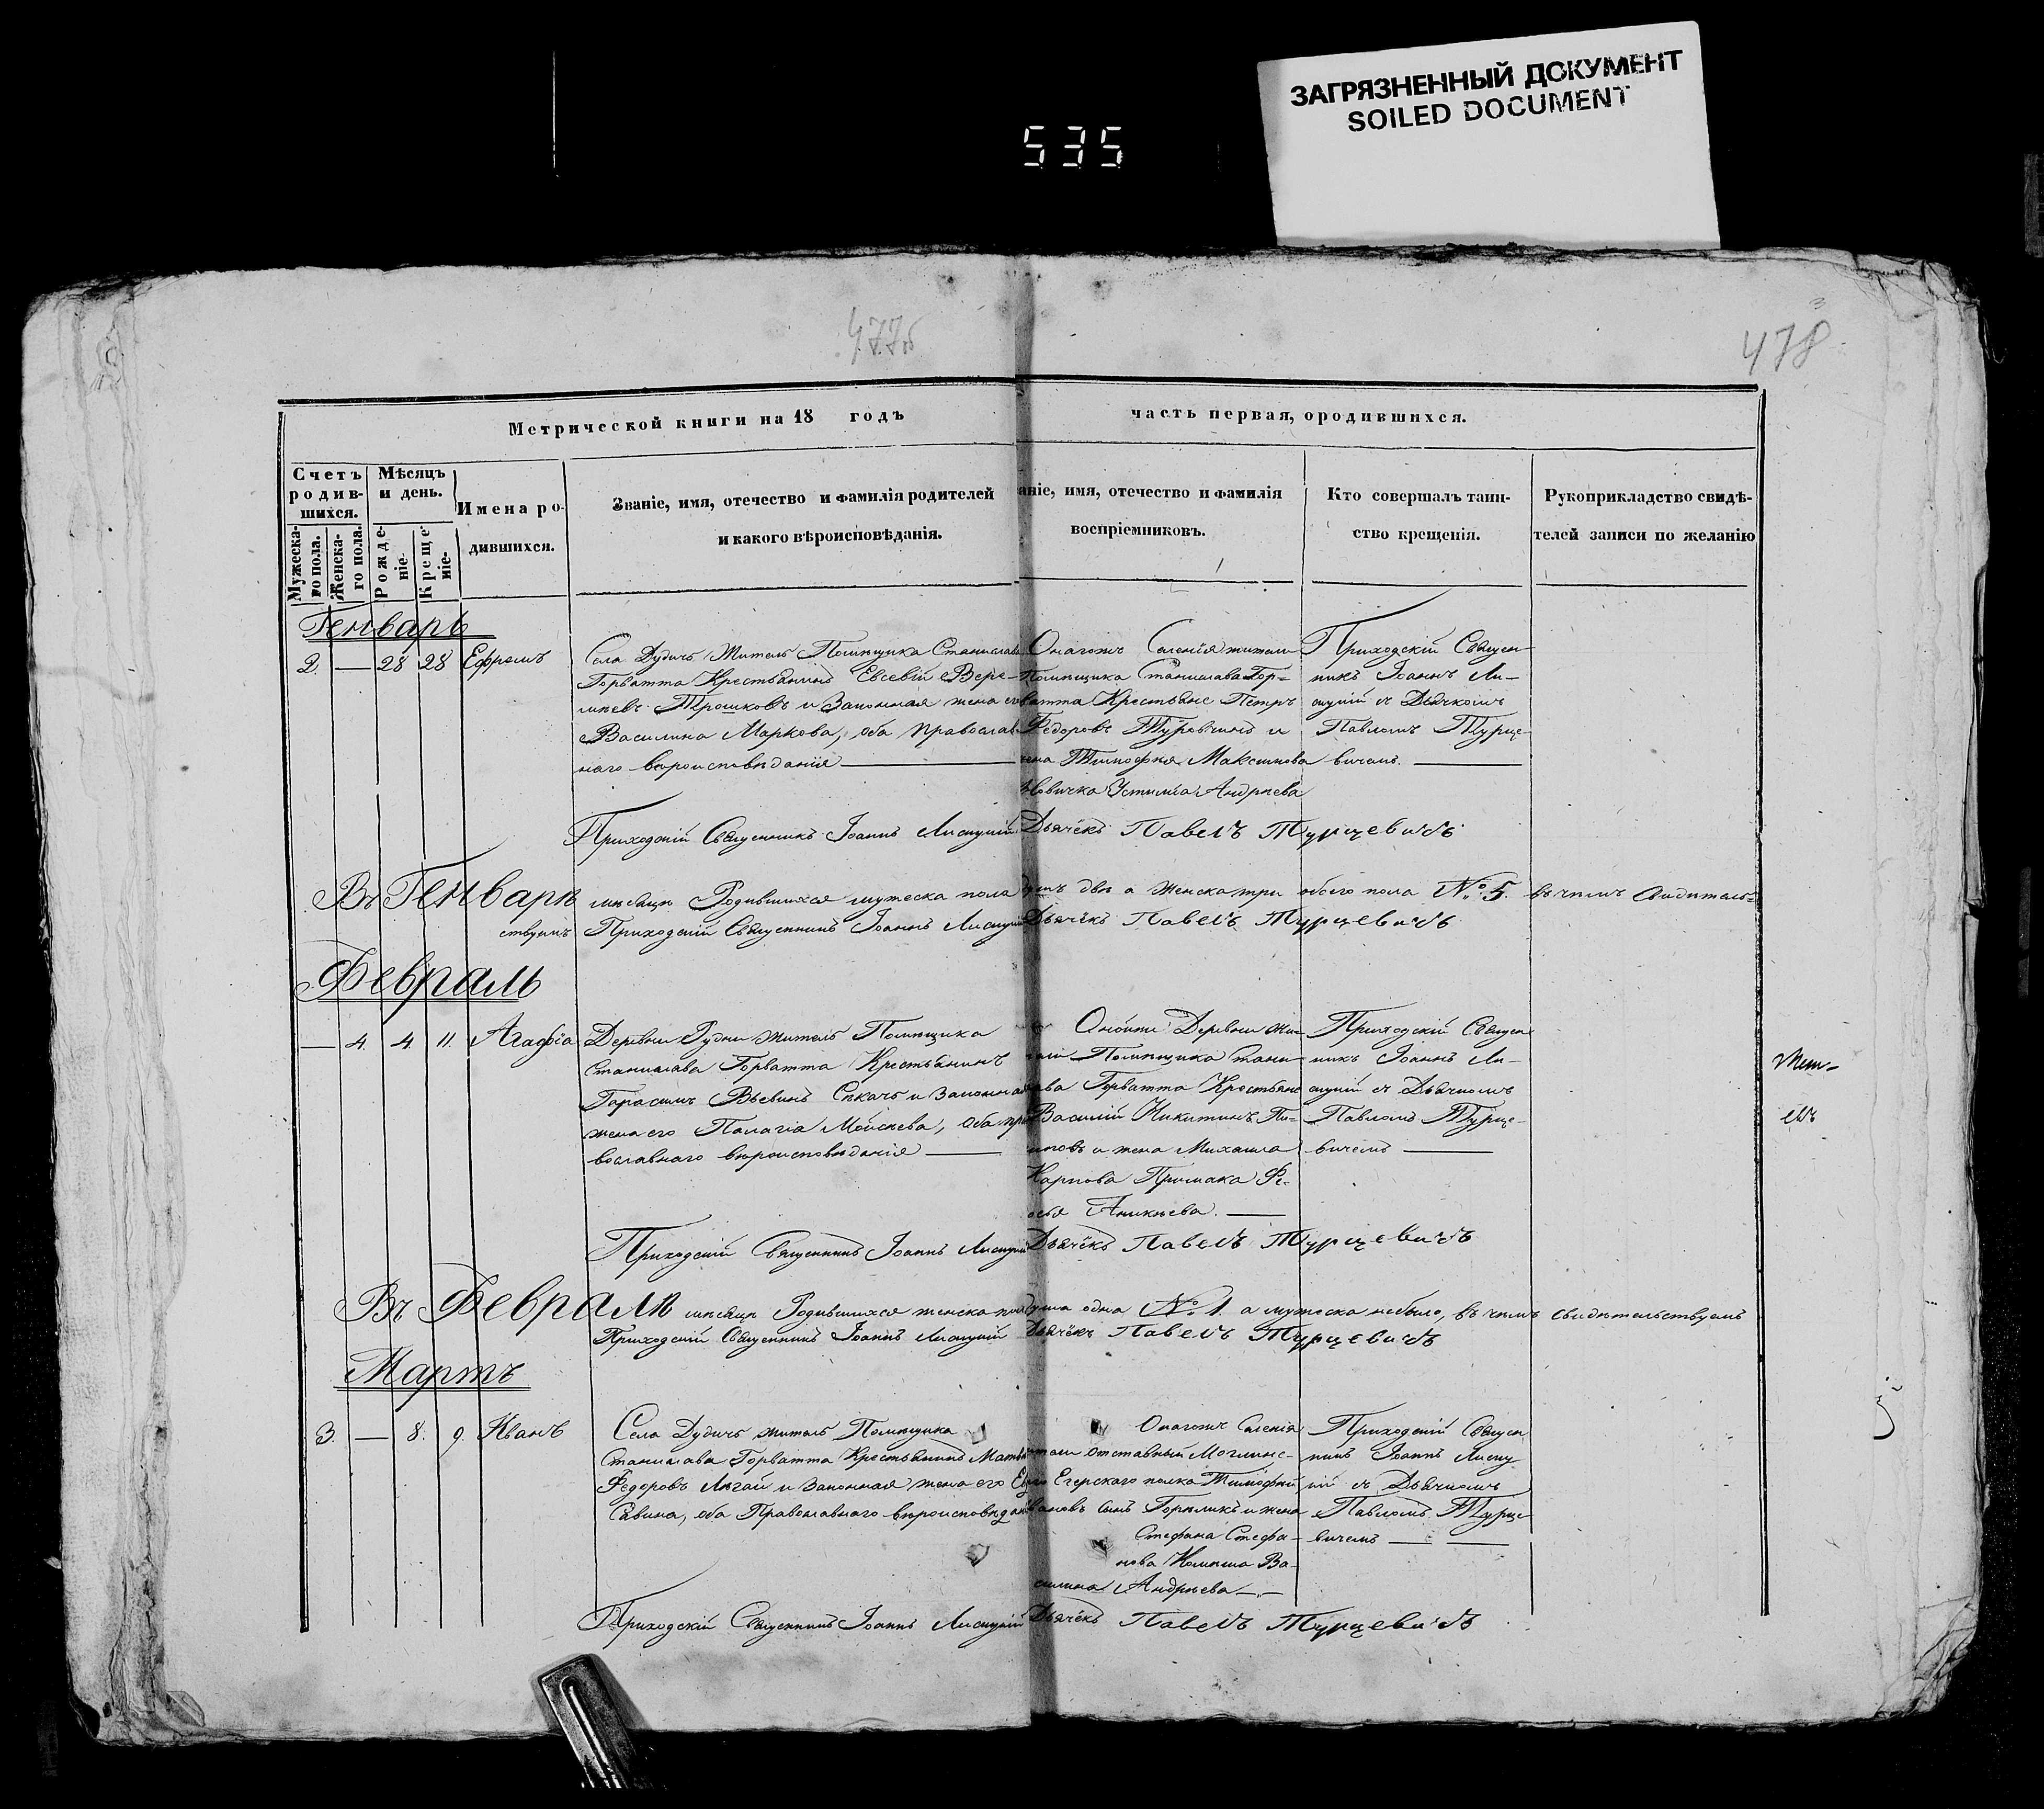 ЗАГРЯЗНЕННЫЙ ДОКУМЕНТ
SOILED DOCUMENT
535
477б
478
3
Метрической книги на 18 годъ часть первая, ородившихся.
Счетъ родив-шихся.
Мужеска-го пола.
Женска-го пола.
Мѣсяцъ и день.
Рожде-ніе.
Креще-ніе.
Имена ро-
дившихся.
Званіе, имя, отечество и фамилія родителей
и какого вѣроисповѣданія.
аніе, имя, отечество и фамилія
воспріемниковъ.
Кто совершалъ таин-
ство крещенія.
Рукоприкладство свидѣ-
телей записи по желанію
Генварь
2. — 28 28 Ефремъ
Села Дудичъ Житель Помѣщика Станислава
Горватта Крестьянинъ Евсевій Вере-
мѣевъ и Законная жена его
Василина Маркова, оба православ
наго вѣроисповѣданія
Онагожъ Селенія жители
Помѣщика Станислава Гор-
ватта Крестьяне Петръ
Федоровъ Туровчинъ и
жена Тимофея Максимова
Устинія Андреева
Приходскій Священ
никъ Іоаннъ Ли-
сицкій съ Дьячкомъ
Павломъ Турце-
вичемъ.
Приходскій Священникъ Іоаннъ Лисицкій Дьячекъ Павелъ Турцевичъ
Въ Генварѣ мѣсяцѣ Родившихся мужеска пола душъ двѣ а женска три обоего пола № 5. въ чемъ свидѣтель-
ствуемъ Приходскій Священникъ Іоаннъ Лисицкій Дьячекъ Павелъ Турцевичъ
Февраль
— 4. 4. 11. Агафія
Деревни Рудни житель Помѣщика
Станислава Горватта Крестьянинъ
Гарасимъ и Законная
жена его Палагія Мойсеева, оба пра
вославнаго вѣроисповѣданія
Оной же Деревни жи-
тели Помѣщика Стани-
слава Горватта Крестьяне
Василій Никитинъ
и жена Михаила
Карпова Примака Ѳе-
осья Аникеева.
Приходскій Священ
никъ Іоаннъ Ли-
сицкій съ Дьячкомъ
Павломъ Турце-
вичемъ
Приходскій Священникъ Іоаннъ Лисицкій Дьячекъ Павелъ Турцевичъ
Въ Февралѣ мѣсяцѣ Родившихся женска пола душа одна № 1. а мужеска не было, въ чемъ свидѣтельствуемъ
Приходскій Священникъ Іоаннъ Лисицкій Дьячекъ Павелъ Турцевичъ
Мартъ
3. — 8. 9. Иванъ
Села Дудичъ житель Помѣщика
Станислава Горватта Крестьянинъ Матвѣй
Федоровъ Лягай и Законная жена его
Савина, оба Православнаго вѣроисповѣданія
Онагожъ Селенія
отставный
Егерского полка Тимофей
Ивановъ сынъ Горѣликъ и жена
Стефана Стефа-
нова Ва-
силина Андреева
Приходскій Священ
никъ Іоаннъ Лисиц
кій съ Дьячкомъ
Павломъ Турце-
вичемъ
Приходскій Священникъ Іоаннъ Лисицкій Дьячекъ Павелъ Турцевичъ